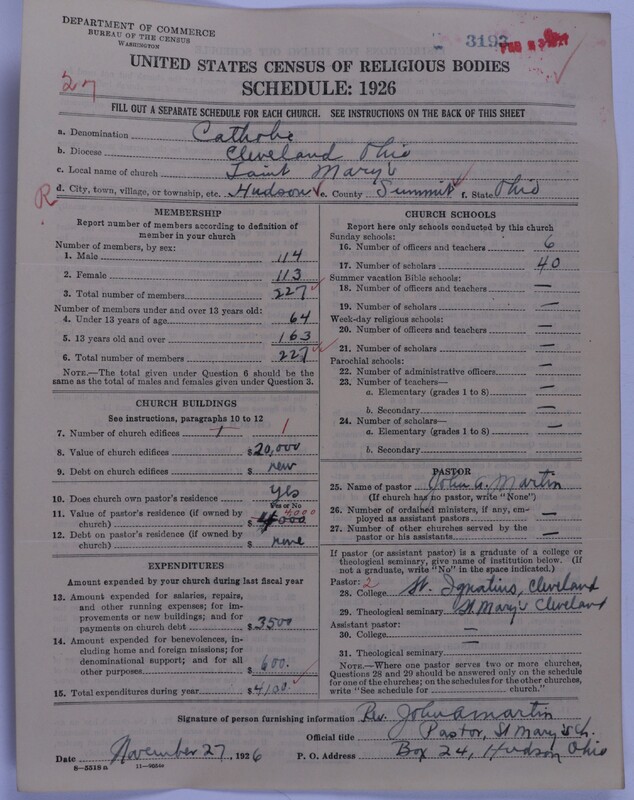 DEPARTMENT OF COMMERCE
BUREAU OF THE CENSUS
WASHINGTON
3193
FEB
27
UNITED STATES CENSUS OF RELIGIOUS BODIES
SCHEDULE: 1926
FILL OUT A SEPARATE SCHEDULE FOR EACH CHURCH. SEE INSTRUCTIONS ON THE BACK OF THIS SHEET
a. Denomination Catholic
b. Diocese Cleveland Ohio
c. Local name of church Saint Mary's
R
d. City, town, village, or township, etc. Hudson e. County Summit f. State Ohio
MEMBERSHIP
Report number of members according to definition of
member in your church
Number of members, by sex:
1. Male 114
2. Female 113
3. Total number of members 227
Number of members under and over 13 years old:
4. Under 13 years of age 64
5. 13 years old and over 163
6. Total number of members 227
NOTE.—The total given under Question 6 should be the
same as the total of males and females given under Question 3.
CHURCH BUILDINGS
See instructions, paragraphs 10 to 12
7. Number of church edifices 1 1
8. Value of church edifices $20,000
9. Debt on church edifices $
10. Does church own pastor's residence yes
Yes or No
11. Value of pastor's residence (if owned by
church) $ 4000 4,000
12. Debt on pastor's residence (if owned by
church) $ none
EXPENDITURES
Amount expended by your church during last fiscal year
13. Amount expended for salaries, repairs,
and other running expenses; for im-
provements or new buildings; and for
payments on church debt $3500
14. Amount expended for benevolences, in-
cluding home and foreign missions; for
denominational support; and for all
other purposes $ 600.
15. Total expenditures during year $4100.
CHURCH SCHOOLS
Report here only schools conducted by this church
Sunday schools:
16. Number of officers and teachers 6
17. Number of scholars 40
Summer vacation Bible schools:
18. Number of officers and teachers —
19. Number of scholars —
Week-day religious schools:
20. Number of officers and teachers —
21. Number of scholars —
Parochial schools:
22. Number of administrative officers —
23. Number of teachers—
a. Elementary (grades 1 to 8) —
b. Secondary —
24. Number of scholars—
a. Elementary (grades 1 to 8) —
b. Secondary
PASTOR
25. Name of pastor John A. Martin
(If church has no pastor, write "None")
26. Number of ordained ministers, if any, em-
ployed as assistant pastors —
27. Number of other churches served by the
pastor or his assistants —
If pastor (or assistant pastor) is a graduate of a college or
theological seminary, give name of institution below. (If
not a graduate, write "No" in the space indicated.)
Pastor: 2
28. College St. Ignatius, Cleveland
29. Theological seminary St Mary's Cleveland
Assistant pastor:
30. College —
31. Theological seminary —
NOTE.—Where one pastor serves two or more churches,
Questions 28 and 29 should be answered only on the schedule
for one of the churches; on the schedules for the other churches,
write "See schedule for church."
Signature of person furnishing information Rev. John A Martin
Official title Pastor, St Mary's Ch.
Date November 27, 1926 P. O. Address Box 24, Hudson Ohio
8—5318 a